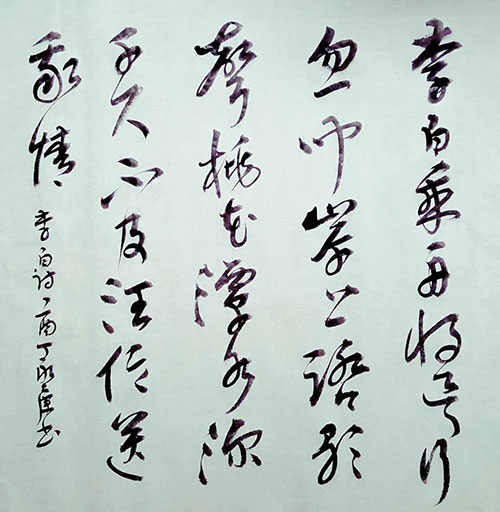 李白乘舟将欲行
忽闻岸上踏歌
聲桃花潭水深
千尺不及汪伦送
我情
李白诗 酉丁 书